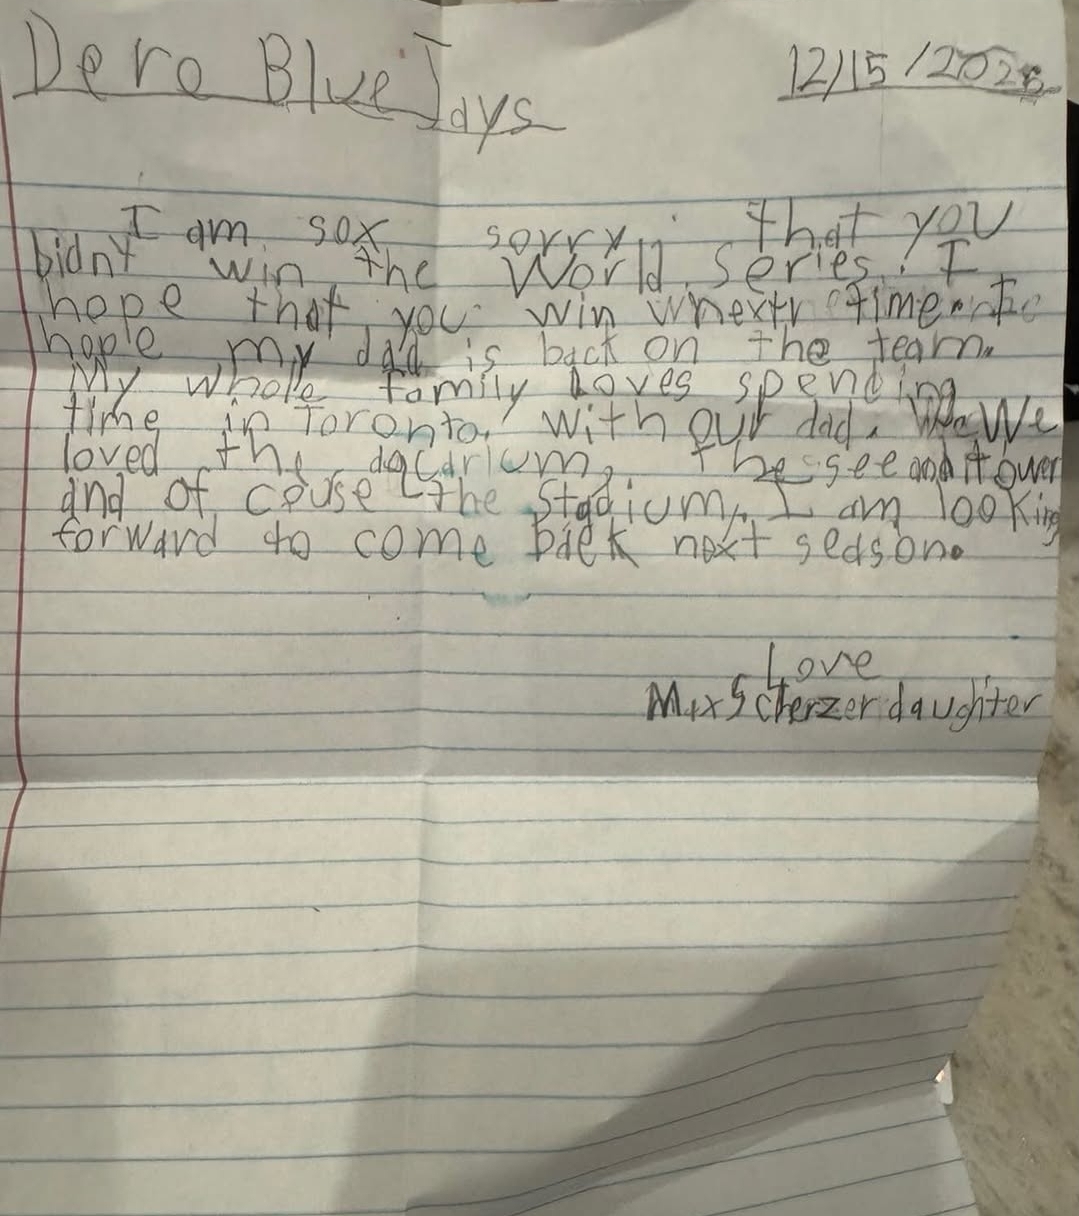 Dero Blue Jays
12/15/2025
I am sox sorry that you
bidnt win the World series. I
hope that you win whextr time. I
hope my dad is back on the team.
My whole family loves spending
time in Toronto. with our dad. We We
loved the aqcarium, the see and it ower
and of couse the Stadium. I am looking
forward to come back next season.
Love
Max Scherzer daughter